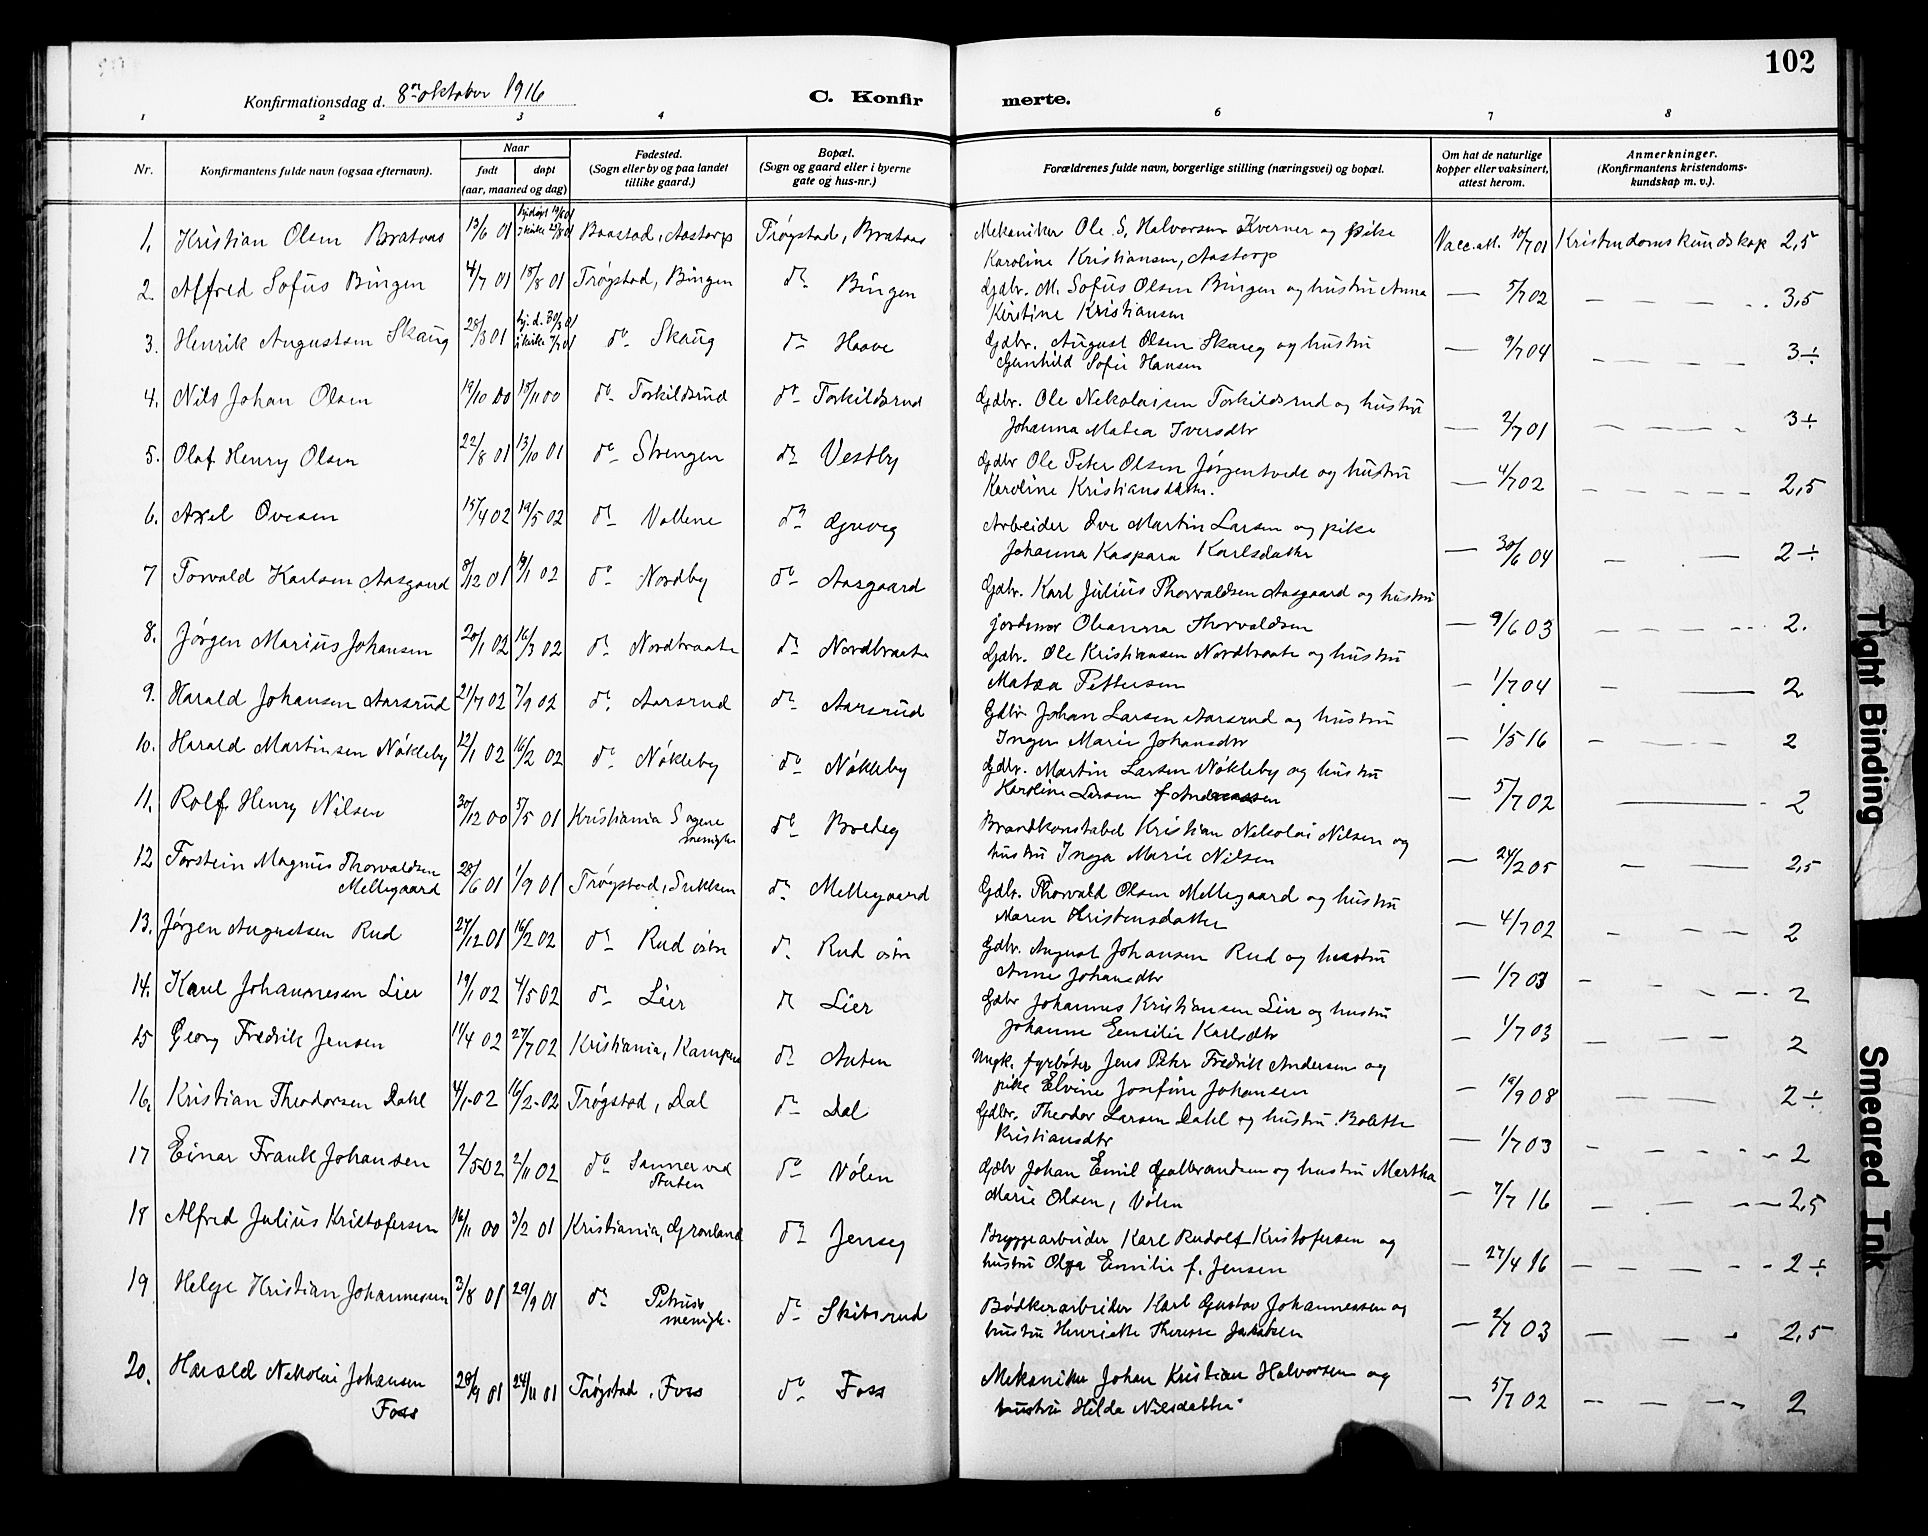 102
Konfirmationsdag d. 8de oktober 1916
C. Konfir merte.
1 2 3 4 6 7 8
Nr. Konfirmantens fulde navn (ogsaa efternavn). Naar født døpt (aar, maaned og dag) Fødested. (Sogn eller by og paa landet tillike gaard.) Bopæl. (Sogn og gaard eller i byerne gate og hus-nr.) Forældrenes fulde navn, borgerlige stilling (næringsvei) og bopæl. Om hat de naturlige kopper eller vaksinert, attest herom. Anmerkninger. (Konfirmantens kristendomskundskap m. v.).
1. Kristian Olsen Brataas 13/6 01 Baastad, Aastorp Trøgstad, Brataas Mekaniker Ole S. Halvorsen Kverner og pike Vacc.att. 10/7 01 Kristendomskundskap 2,5
Karoline Kristiansen, Aastorp
2. Alfred Sofus Bingen 4/7 01 18/8 01 Trøgstad, Bingen do Bingen Gdbr. M. Sofus Olsen Bingen og hustru Anna — 5/7 02 — 3,5
Kirstine Kristiansen
3. Henrik Augustsen Skaug 28/3 01 do Skaug do Haave Gdbr. August Olsen Skaug og hustru — 9/7 04 — 3÷
Gunhild Sofie Hansen
4. Nils Johan Olsen 19/10 00 18/11 00 do Torkildsrud do Torkildsrud Gdbr. Ole Nekolaisen Torkildsrud og hustru — 2/7 01 — 3÷
Johanna Matea Iversdtr
5. Olaf Henry Olsen 22/8 01 13/10 01 do Strengen do Vestby Gdbr Ole Peter Olsen Jørgentvedt og hustru — 4/7 02 — 2,5
Karoline Kristiansdattr.
6. Axel Ovesen 15/4 02 19/5 02 do Vollene do Grav Arbeider Ove Martin Larsen og pike — 30/6 04 — 2÷
Johanna Kaspara Karlsdattr
7 Torvald Karlsen Aasgaard 8/12 01 19/1 02 do Nordby do Aasgaard Gdbr. Karl Julius Thorvaldsen Aasgaard og hustru — 9/6 03 — 2.
jordmor Oleanna Thorvaldsen
8. Jørgen Marius Johansen 20/1 02 16/3 02 do Nordbraate do Nordbraate Gdbr. Ole Kristiansen Nordbraate og hustru — 1/7 04 — 2
Matea Pettersen
9. Harald Johansen Aarsrud 21/7 02 7/9 02 do Aarsrud do Aarsrud Gdbr Johan Larsen Aarsrud og hustru — 1/5 16 — 2
Inger Marie Johansdtr
10. Harald Martinsen Nøkleby 12/1 02 16/2 02 do Nøkleby do Nøkleby Gdbr. Martin Larsen Nøkleby og hustru — 5/7 02 — 2
Karoline Larsen f. Andreassen
11. Rolf Henry Nilsen 30/12 00 5/5 01 Kristiania Sagene menigh. do Brandkonstabel Kristian Nikolai Nilsen og — 24/2 05 — 2,5
hustru Inga Marie Nilsen
12 Torstein Magnus Thorvaldsen Mellegaard 28/6 01 1/9 01 Trøgstad, do Mellegaard Gdbr. Thorvald Olsen Mellegaard og hustru — 4/7 02 — 2
Maren Kristensdatter
13. Jørgen Augustsen Rud 27/12 01 16/2 02 do Rud østre do Rud østre Gdbr. August Johansen Rud og hustru — 1/7 03 — 2
Anne Johansdtr
14. Karl Johannesen Lier 19/1 02 4/5 02 do Lier do Lier Gdbr Johannes Kristiansen Lier og hustru — 1/7 03 — 2
Johanne Eemilie Karlsdtr
15 Georg Fredrik Jensen 11/4 02 27/7 02 Kristiania, Kampen do Anten Ungk. fyrbøter Jens Peter Fredrik Andersen og — 19/9 08 — 2÷
pike Elvine Josefine Johansen
16. Kristian Theodorsen Dahl 4/1-02 16/2-02 Trøgstad, Dal do Dal Gdbr. Theodor Larsen Dahl og hustru Bolette — 1/7 03 — 2
Kristiansdtr
17 Einar Frank Johansen 2/5-02 2/11 02 do Sanner ved Anten do Vølen Gdbr Johan Emil Gulbrandsen og hustru Martha — 7/7 16 — 2,5
Marie Olsen, Vølen
18 Alfred Julius Kristofersen 16/11 00 3/2 01 Kristiania, Grønland do Jensey Bryggearbeider Karl Rudolf Kristofersen og — 27/4 16 — 2÷
hustru Olga Emilie f. Jensen
19 Helge Kristian Johannesen 3/8 01 29/9 01 do Petrus menigh. do Skibsrud Bødkerarbeider Karl Gustav Johannessen og — 2/7 03 — 2,5
hustru Henriette Therese Jakobsen
20. Harald Nekolai Johansen Foss 28/9 01 24/11 01 Trøgstad, Foss do Foss Mekaniker Johan Kristian Halvorsen og — 5/7 02 — 2
hustru Hilda Nilsdatter
Tight Binding
Smeared Ink